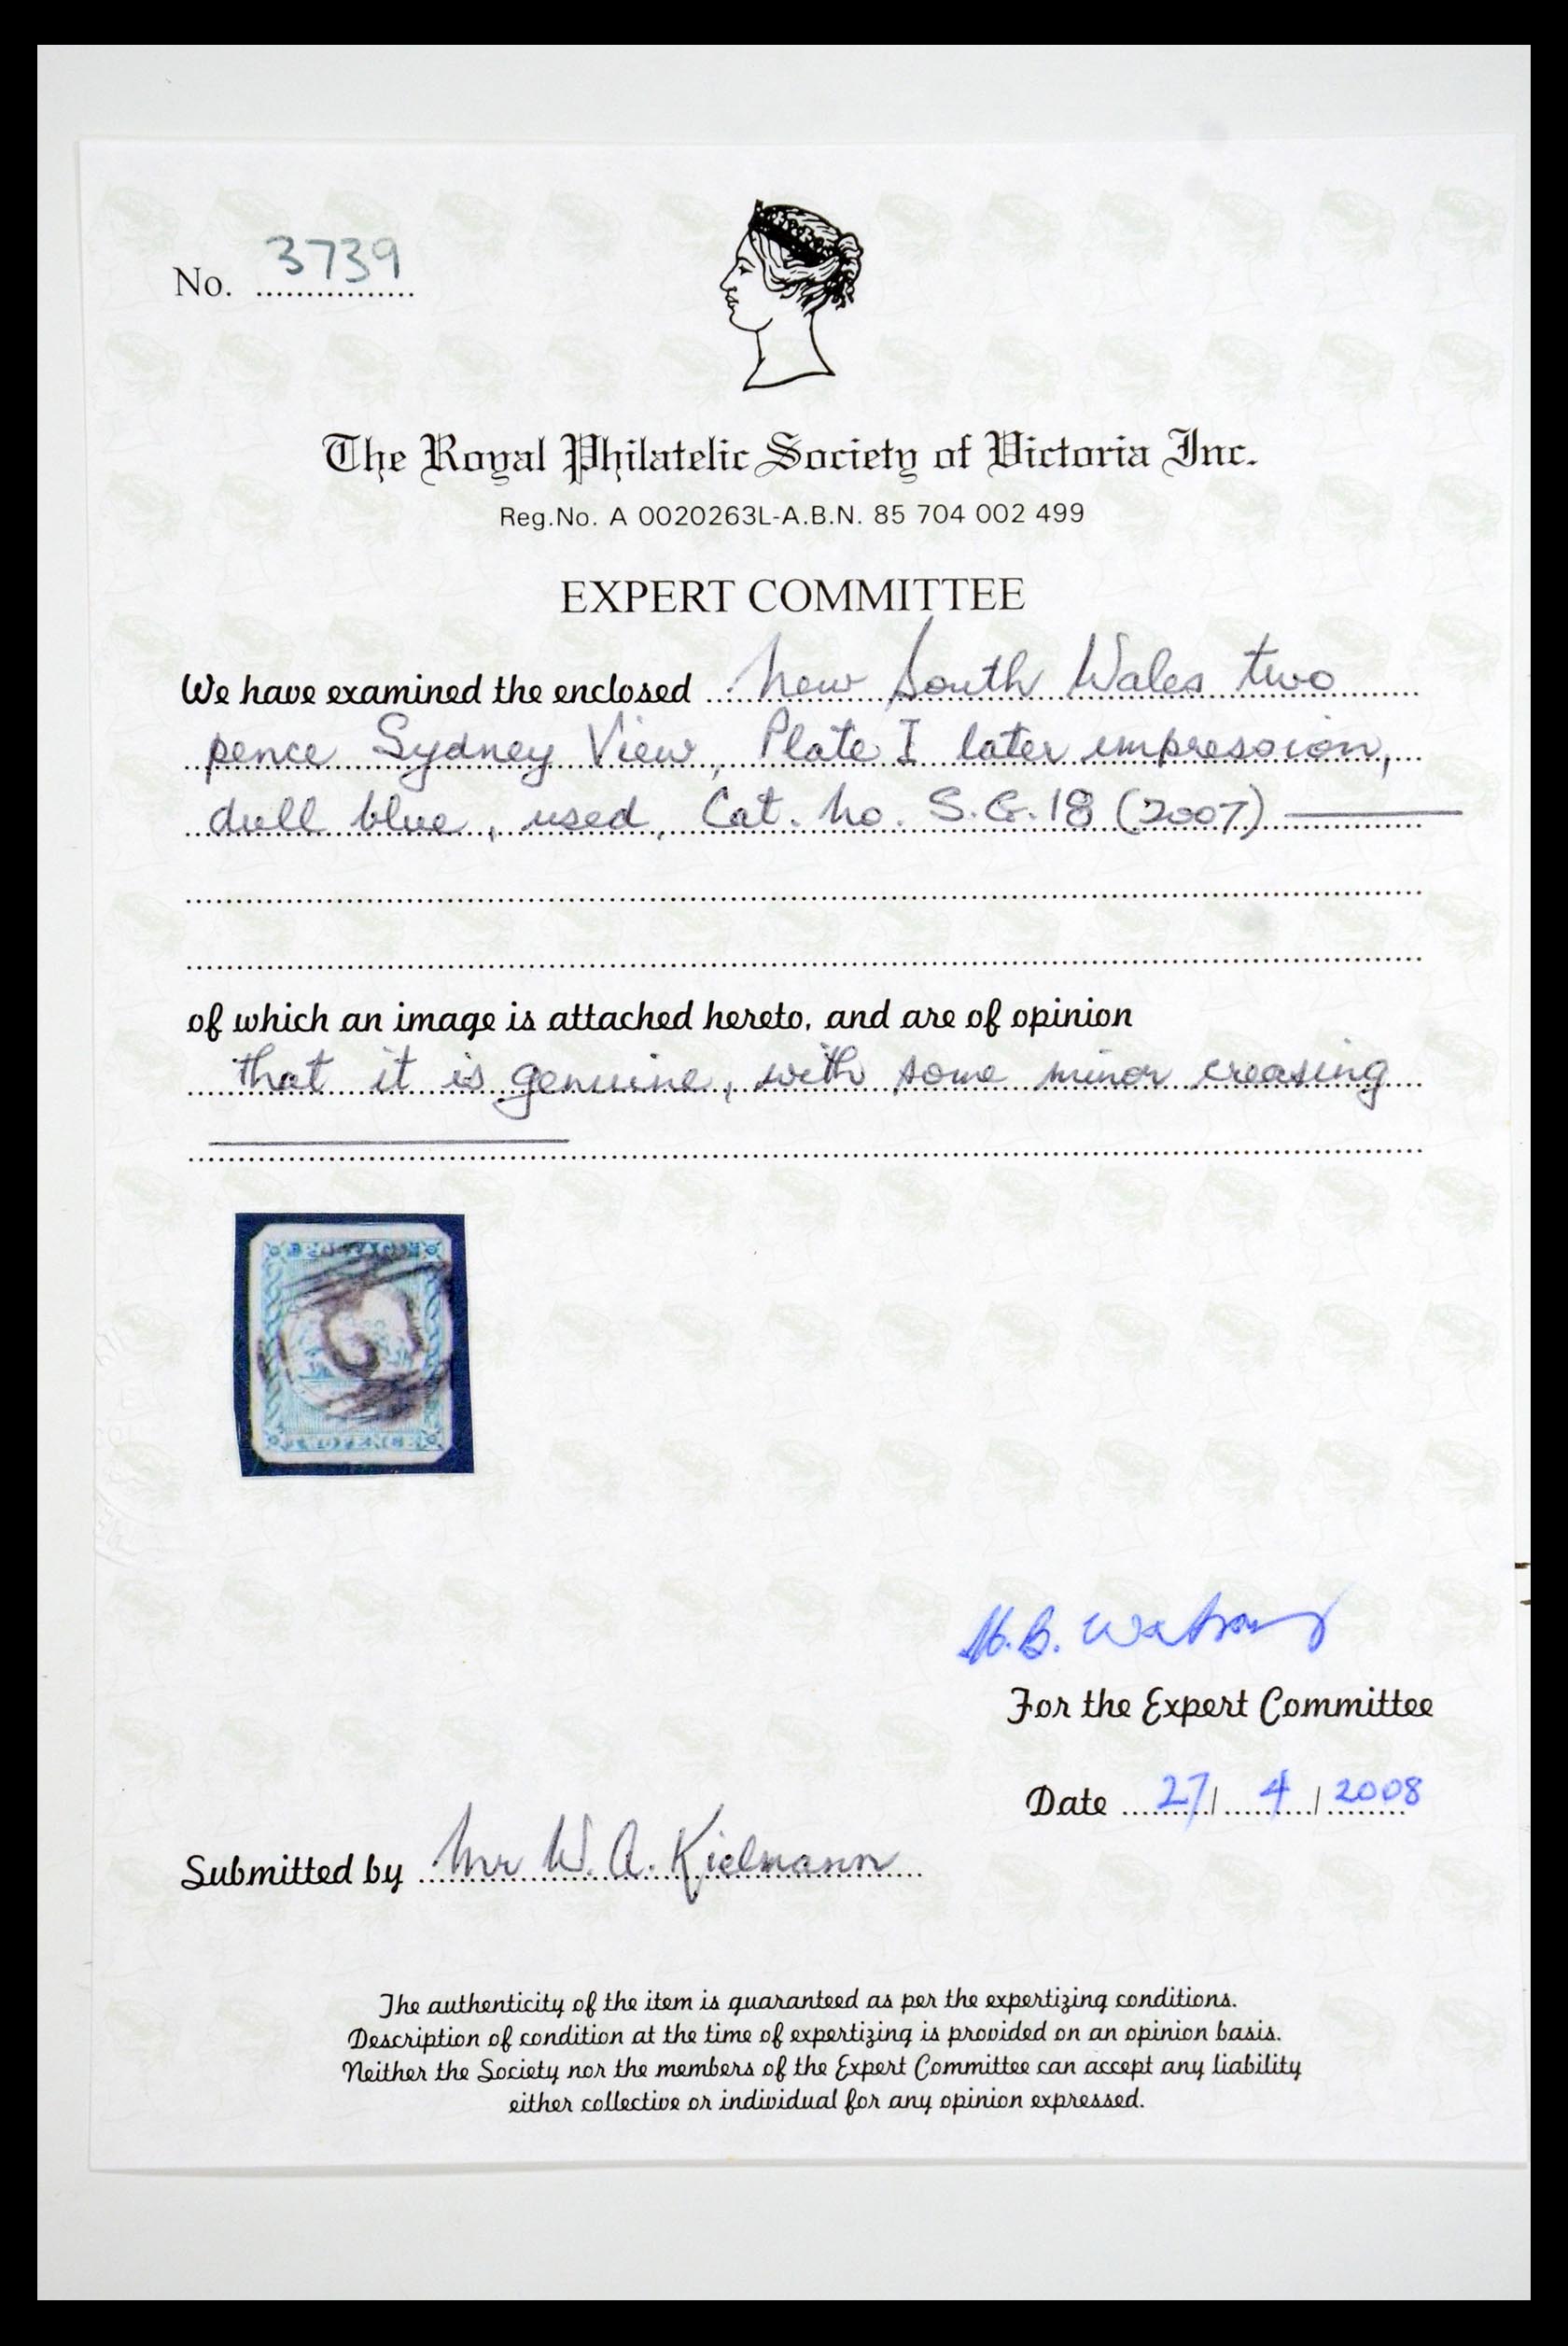 No. 3739
The Royal Philatelic Society of Victoria Inc.
Reg.No. A 0020263L-A.B.N. 85 704 002 499
EXPERT COMMITTEE
We have examined the enclosed New South Wales two
pence Sydney View, Plate I later impression,
dull blue, used, Cat. No. S.G.18 (2007)
of which an image is attached hereto, and are of opinion
that it is genuine, with some minor creasing
H.B. Watson
For the Expert Committee
Date 27/ 4 / 2008
Submitted by Mr W. A. Kielmann
The authenticity of the item is guaranteed as per the expertizing conditions.
Description of condition at the time of expertizing is provided on an opinion basis.
Neither the Society nor the members of the Expert Committee can accept any liability
either collective or individual for any opinion expressed.